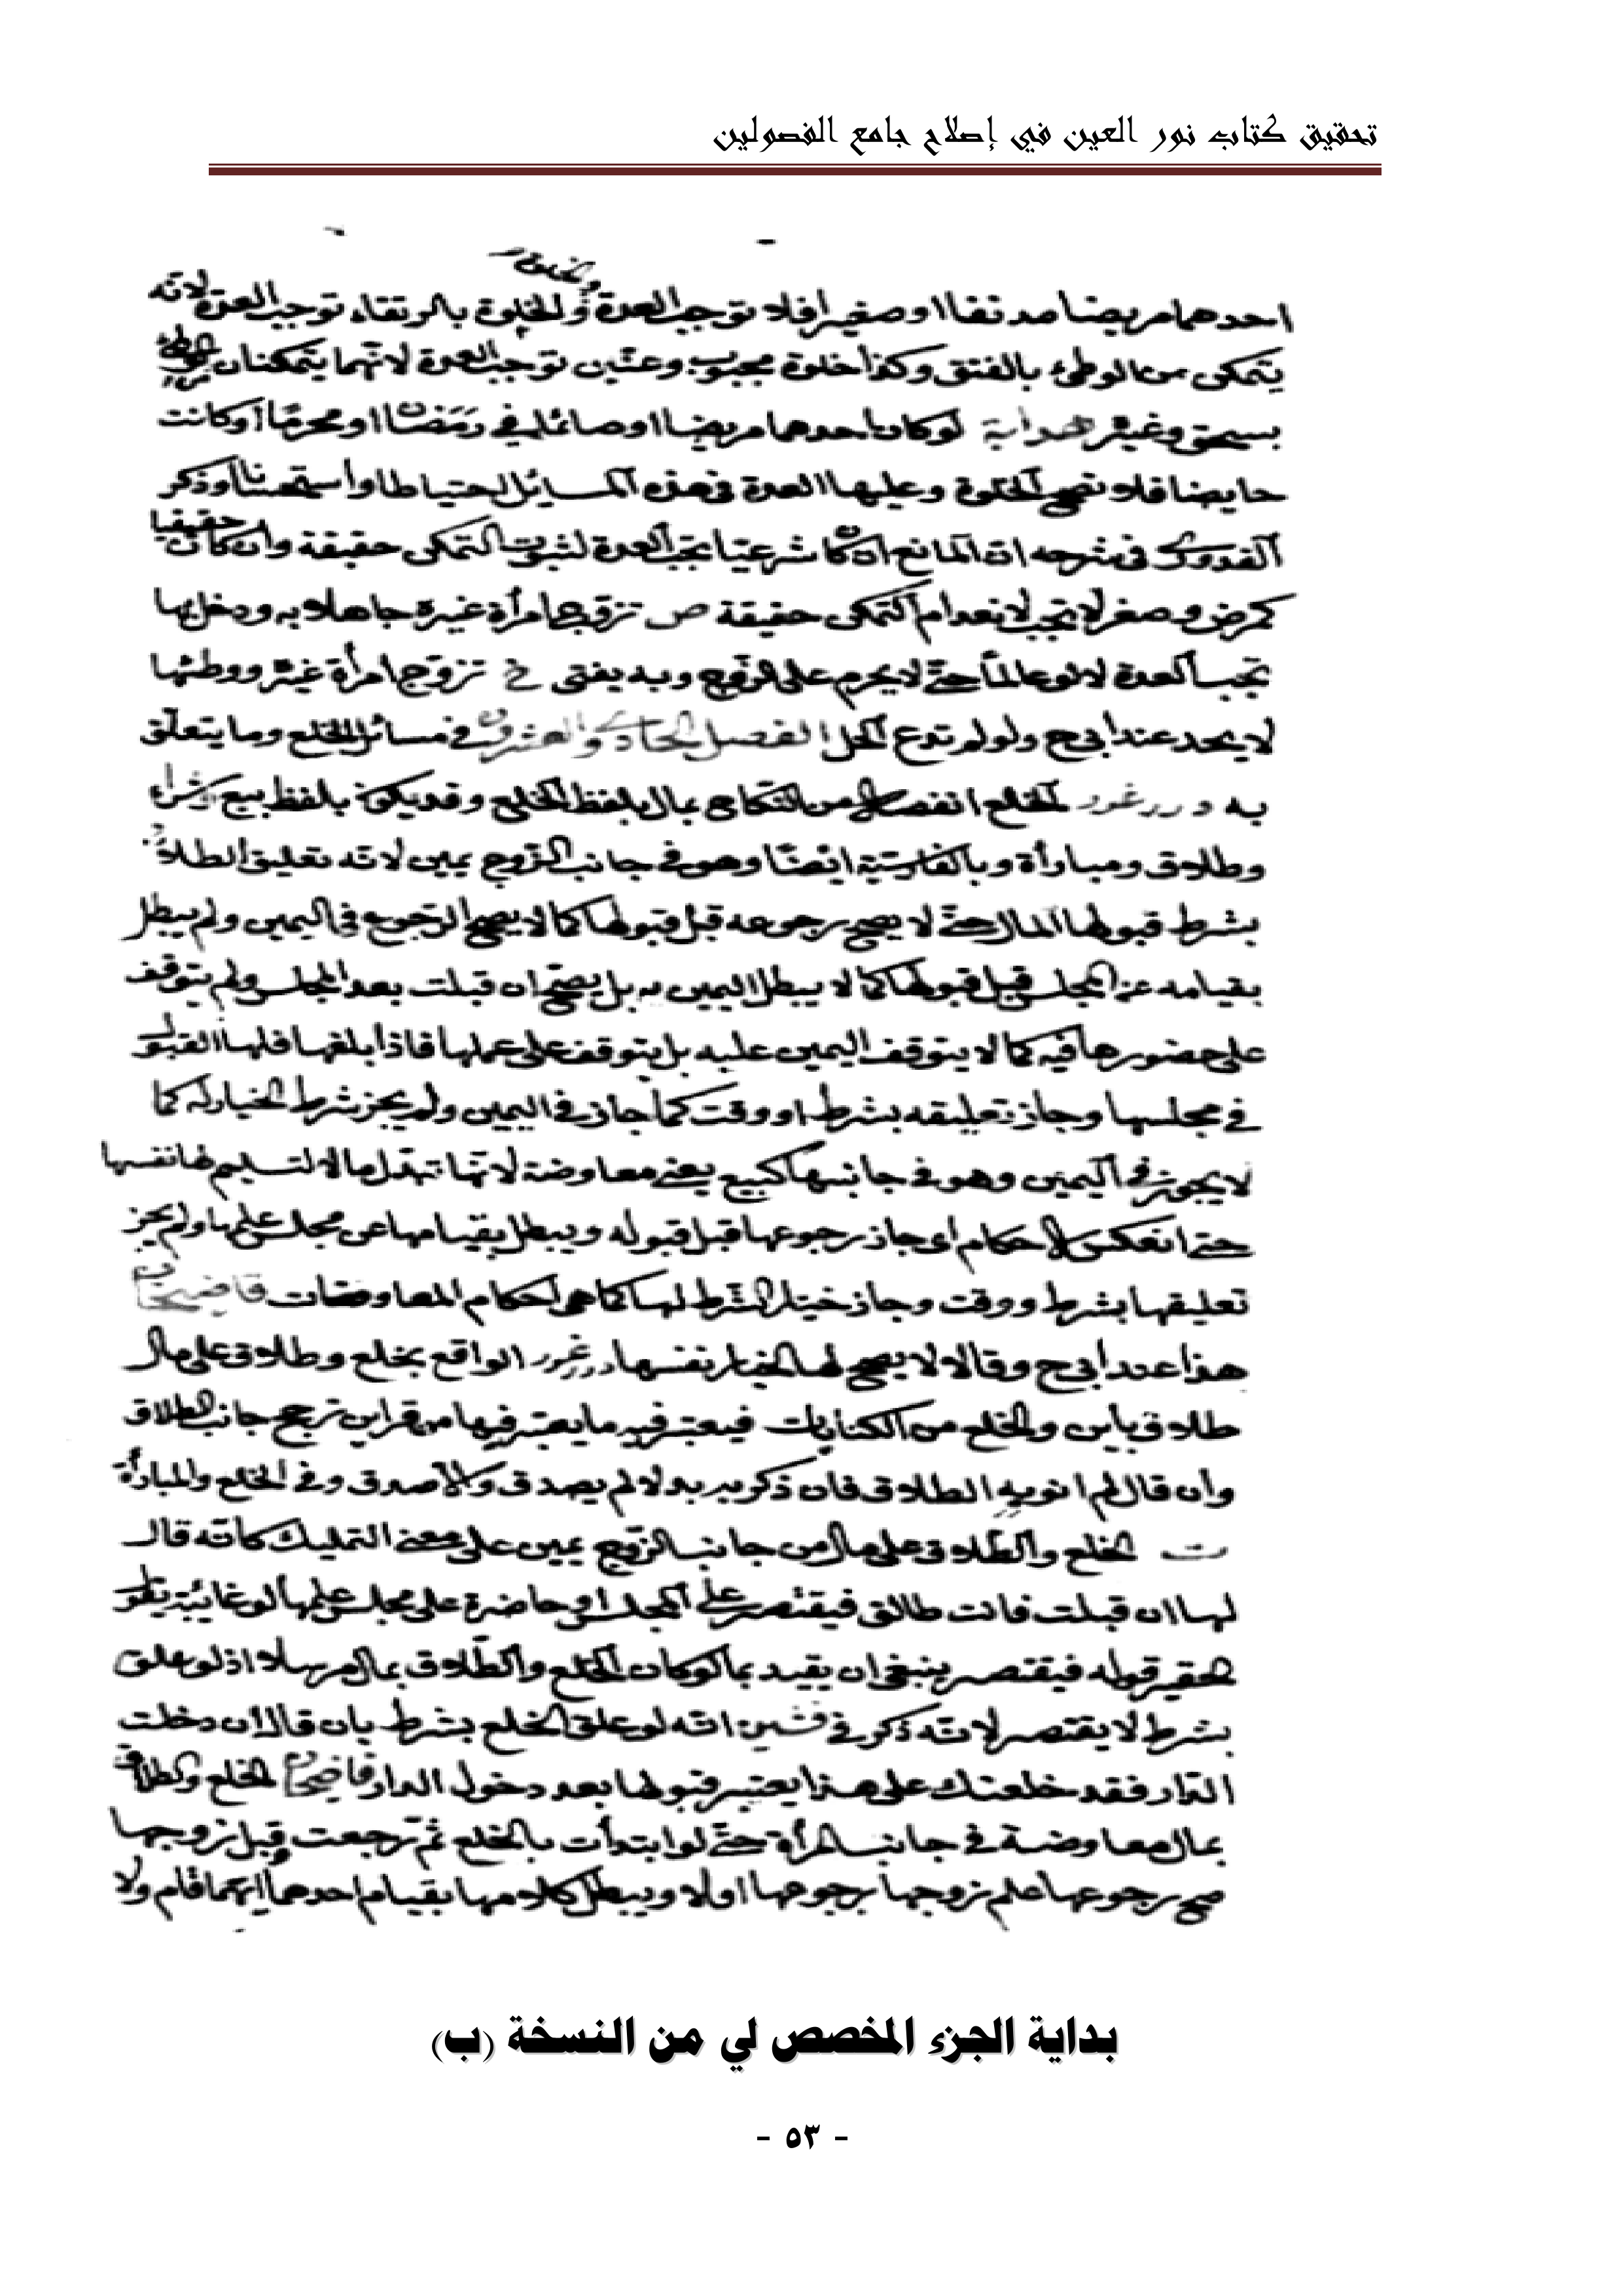 تحقيق كتاب نور العين في إصلاح جامع الفصولين
احدهما مريضا مدنفا او صغيرا فلا توجب العدة والخلوة بالرتقاء توجب العدة لانه
يتمكن من الوطئ بالفتق وكذا خلوة مجبوب وعنين توجب العدة لانهما يتمكنان
بسحق وغيره هداية لو كان احدهما مريضا او صائما في رمضان او محرما او كانت
حايضا فلا تصح الخلوة وعليها العدة في هذه المسائل احتياطا واستحسانا وذكر
القدوري في شرحه ان المانع ان كان شرعيا تجب العدة لثبوت التمكن حقيقة وان كان حقيقيا
كمرض وصغر لا تجب لانعدام التمكن حقيقة ص تزوج امرأة غيره جاهلا به ودخل بها
تجب العدة لا لو عالما حتى لا يحرم على الزوج وبه يفتى خ تزوج امرأة غيره ووطئها
لا يحد عند ابي ح ولو لم تدع الحل الفصل الحادي والعشرون في مسائل الخلع وما يتعلق
به درر غرر الخلع انفصال من النكاح بمال بلفظ الخلع وقد يكون بلفظ بيع وشراء
وطلاق ومبارأة وبالفارسية ايضا وهو في جانب الزوج يمين لانه تعليق الطلاق
بشرط قبولها المال حتى لا يصح رجوعه قبل قبولها كما لا يصح الرجوع في اليمين ولم يبطل
بقيامه عن المجلس قبل قبولها كما لا يبطل اليمين به بل يصح ان قبلت بعد المجلس ولم يتوقف
على حضورها فيه كما لا يتوقف اليمين عليه بل يتوقف على علمها فاذا بلغها فلها القبول
في مجلسها وجاز تعليقه بشرط او وقت كما جاز في اليمين ولم يجز شرط الخيار له كما
لا يجوز في اليمين وهو في جانبها كبيع يعني معاوضة لانها تبذل مالا لتسليم لها نفسها
حتى انعكس الاحكام اي جاز رجوعها قبل قبوله ويبطل بقيامها عن مجلس علمها ولم يجز
تعليقها بشرط ووقت وجاز خيار الشرط لها كما هي احكام المعاوضات قاضيخان
هذا عند ابي ح وقالا لا يصح لها الخيار نفسها درر غرر الواقع بخلع وطلاق على مال
طلاق باين والخلع من الكنايات فيعتبر فيه ما يعتبر فيها من قراين ترجح جانب الطلاق
وان قال لم انو به الطلاق فان ذكر به بدلا لم يصدق والا صدق وفي الخلع والمبارأة
ت الخلع والطلاق على مال من جانب الزوج يمين على معنى التمليك كانه قال
لها ان قبلت فانت طالق فيقتصر على المجلس لو حاضرة على مجلس علمها لو غائبة يقول
الحقير قوله فيقتصر ينبغي ان يقيد بما لو كان الخلع والطلاق بمال مرسلا اذ لو علق
بشرط لا يقتصر لانه ذكر في انه لو علق الخلع بشرط بان قال ان دخلت
الدار فقد خلعتك على هذا يعتبر قبولها بعد دخول الدار قاضيخان الخلع والطلاق
بمال معاوضة في جانب المرأة حتى لو ابتدأت بالخلع ثم رجعت قبل زوجها
صح رجوعها علم زوجها برجوعها اولا ويبطل كلامها بقيام احدهما ايهما قام ولا
بداية الجزء المخصص لي من النسخة (ب)
- ٥٣ -